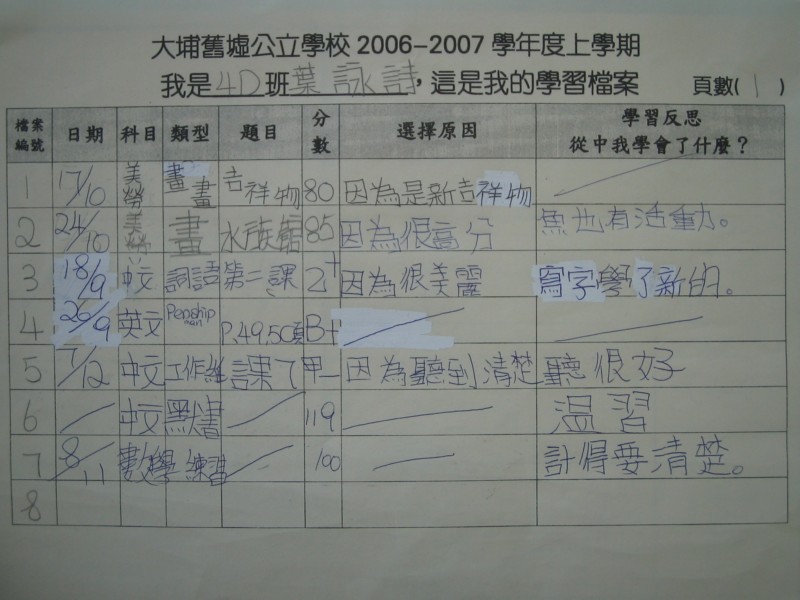 大埔舊墟公立學校 2006-2007 學年度上學期
我是 4D 班 葉詠詩，這是我的學習檔案 頁數( 1 )
檔案編號 日期 科目 類型 題目 分數 選擇原因 學習反思 從中我學會了什麼？
1 17/10 美勞 畫畫 吉祥物 80 因為是新吉祥物
2 24/10 美勞 畫 水族館 85 因為很高分 魚也有活動。
3 18/9 中文 詞語 第二課 2+ 因為很美麗 寫字學了新的。
4 26/9 英文 Penship P.49,50頁 B+
5 7/12 中文 工作紙 課了 甲- 因為聽到清楚 聽很好
6 中文 默書 119 溫習
7 8/11 數學 練習 100 計得要清楚。
8